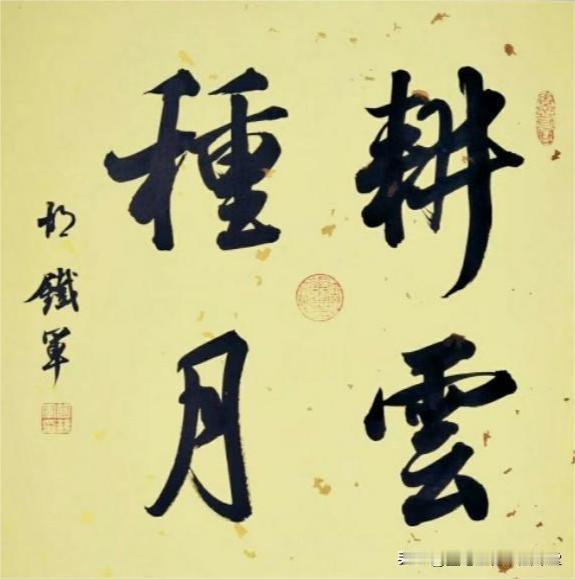 耕雲
種月
鐵軍